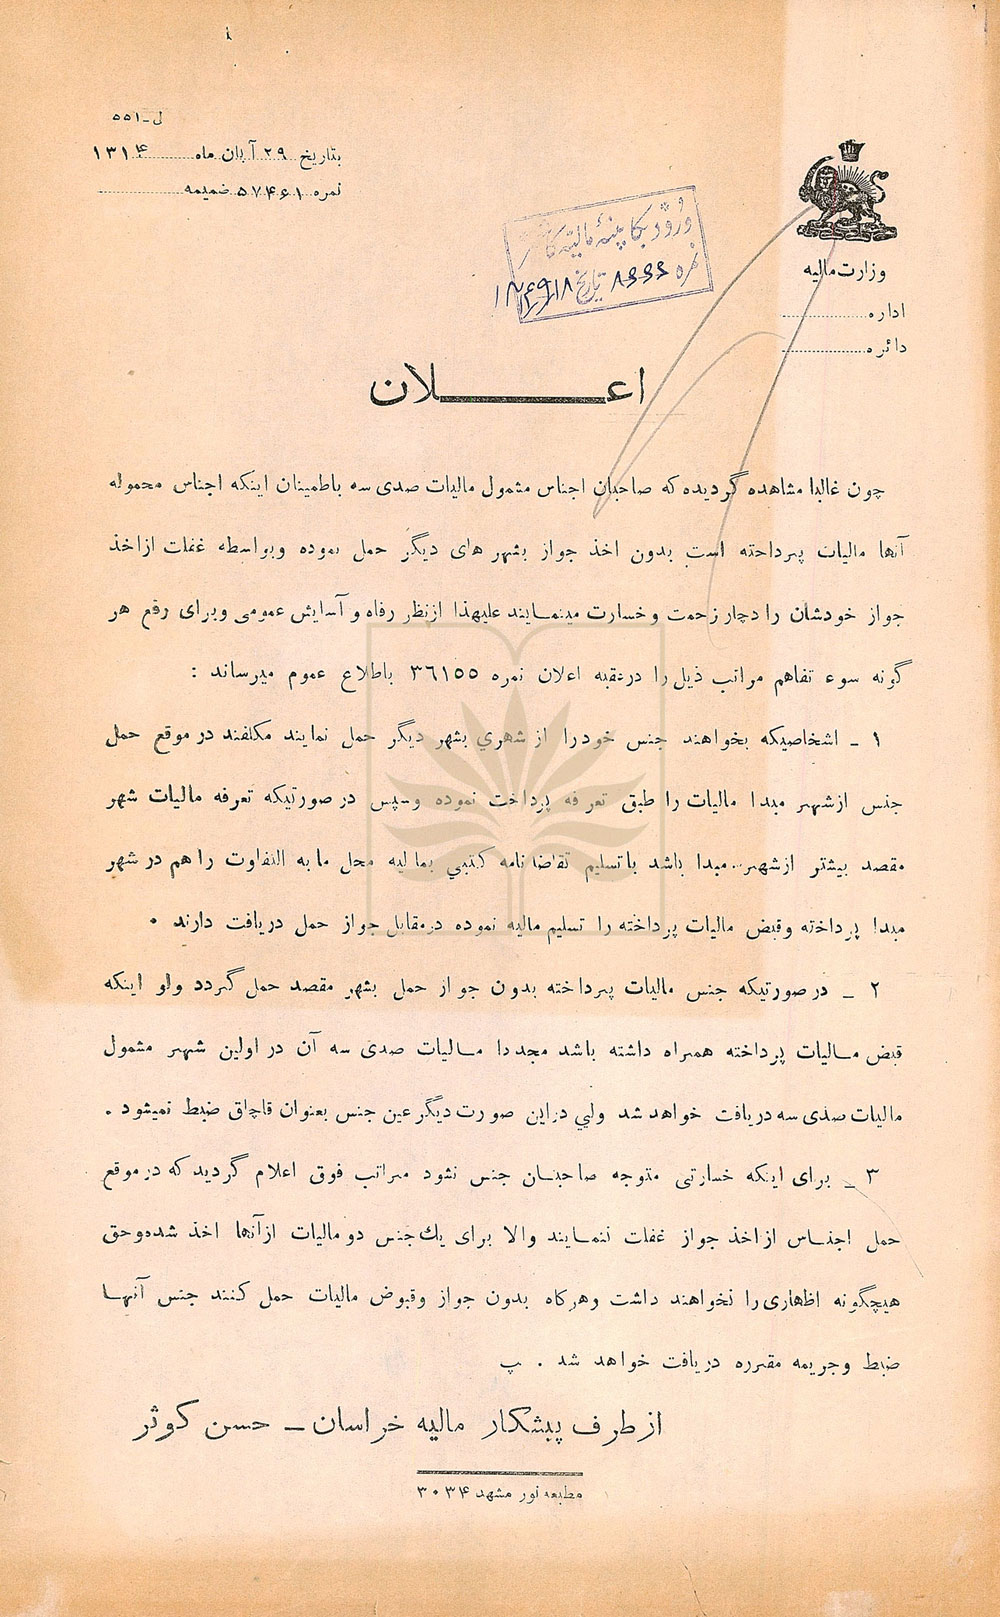 ل-۵۵۱
بتاریخ ۲۹ آبان ماه ۱۳۱۴
نمره ۵۷۴۶۱ ضمیمه
وزارت مالیه
اداره
دائره
ورود بکابینهٔ مالیه
نمره ۸۶۶۶ تاریخ
اعلان
چون غالبا مشاهده گردیده که صاحبان اجناس مشمول مالیات صدی سه باطمینان اینکه اجناس محموله
آنها مالیات پرداخته است بدون اخذ جواز بشهر های دیگر حمل نموده وبواسطه غفلت ازاخذ
جواز خودشان را دچار زحمت وخسارت مینمایند علیهذا ازنظر رفاه و آسایش عمومی وبرای رفع هر
گونه سوء تفاهم مراتب ذیل را درعقبه اعلان نمره ۳۶۱۵۵ باطلاع عموم میرساند :
۱ ـ اشخاصیکه بخواهند جنس خودرا از شهري بشهر دیگر حمل نمایند مکلفند در موقع حمل
جنس ازشهر مبدا مالیات را طبق تعرفه پرداخت نموده وسپس در صورتیکه تعرفه مالیات شهر
مقصد بیشتر ازشهر مبدا باشد باتسلیم تقاضانامه کتبي بمالیه محل مابه التفاوت را هم در شهر
مبدا پرداخته وقبض مالیات پرداخته را تسلیم مالیه نموده درمقابل جواز حمل دریافت دارند ۰
۲ ـ در صورتیکه جنس مالیات پرداخته بدون جواز حمل بشهر مقصد حمل گردد ولو اینکه
قبض مالیات پرداخته همراه داشته باشد مجددا مالیات صدی سه آن در اولین شهر مشمول
مالیات صدی سه دریافت خواهد شد ولي دراین صورت دیگر عین جنس بعنوان قاچاق ضبط نمیشود .
۳ ـ برای اینکه خسارتی متوجه صاحبان جنس نشود مراتب فوق اعلام گردید که در موقع
حمل اجناس ازاخذ جواز غفلت ننمایند والا برای یك جنس دو مالیات ازآنها اخذ شده وحق
هیچگونه اظهاری را نخواهند داشت وهرکاه بدون جواز وقبوض مالیات حمل کنند جنس آنها
ضبط وجریمه مقرره دریافت خواهد شد . پ
از طرف پیشکار مالیه خراسان ـ حسن کوثر
مطبعه نور مشهد ۳۰۳۴